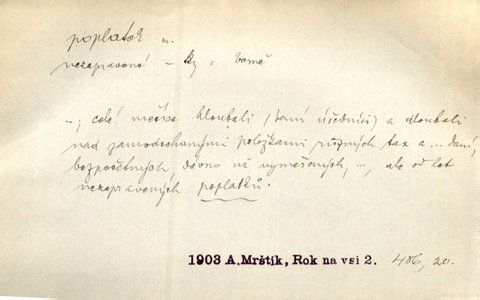 poplatek m.
nezapravené - ky : berně
..., celé měsíce hloubali (berní úředníci) a dloubali
nad zamodrchanými položkami různých tax a ... daní,
bezpočetných, dávno už vyměřených, ..., ale od let
nezapravených poplatků.
1903 A. Mrštík, Rok na vsi 2. 406, 20.